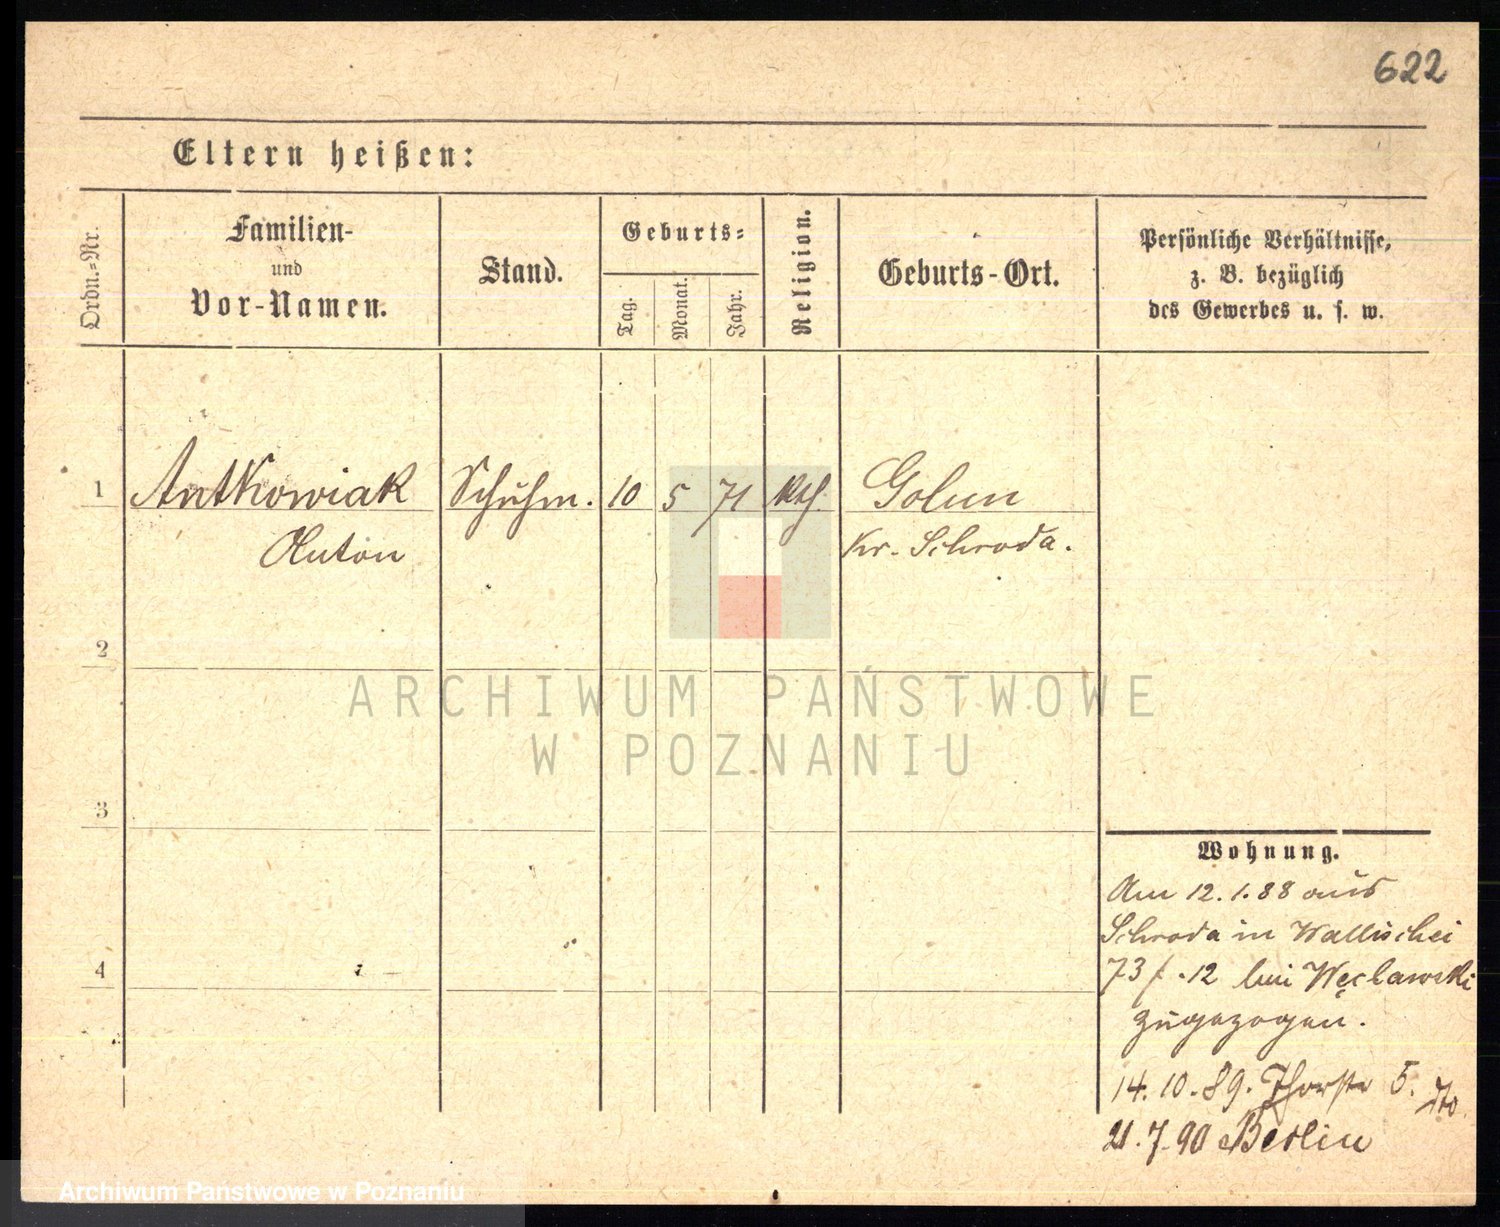 622
Eltern heißen:
Ordn.=Nr.
Familien-
und
Vor-Namen.
Stand.
Geburts=
Tag.
Monat.
Jahr.
Religion.
Geburts-Ort.
Persönliche Verhältnisse,
z. B. bezüglich
des Gewerbes u. s. w.
1 Antkowiak Schuhm. 10 5 71 kth. Golun
Anton Kr. Schroda.
2
3
4
ARCHIWUM PAŃSTWOWE
W POZNANIU
Wohnung.
Am 12.1.88 aus
Schroda in Wallischei
73 12 bei Węclawski
zugezogen.
14.10.89. Thorstr 5.
21.7.90 Berlin
Archiwum Państwowe w Poznaniu